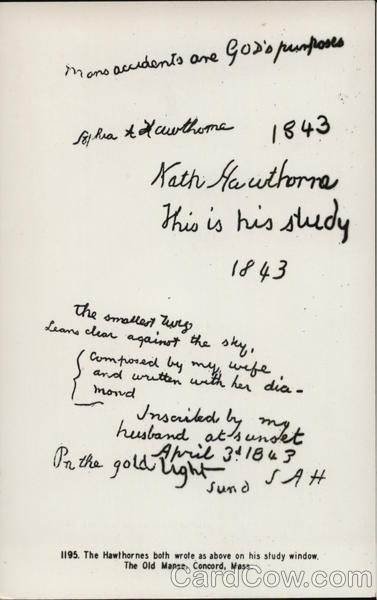 Mans accidents are GOD's purposes
Sophia A Hawthorne 1843
Nath Hawthorne
This is his study
1843
The smallest twig
Leans clear against the sky.
Composed by my wife
and written with her dia-
mond
Inscribed by my
husband at sunset
April 3d 1843
On the gold light
SAH
1195. The Hawthornes both wrote as above on his study window,
The Old Manse, Concord, Mass.
CardCow.com